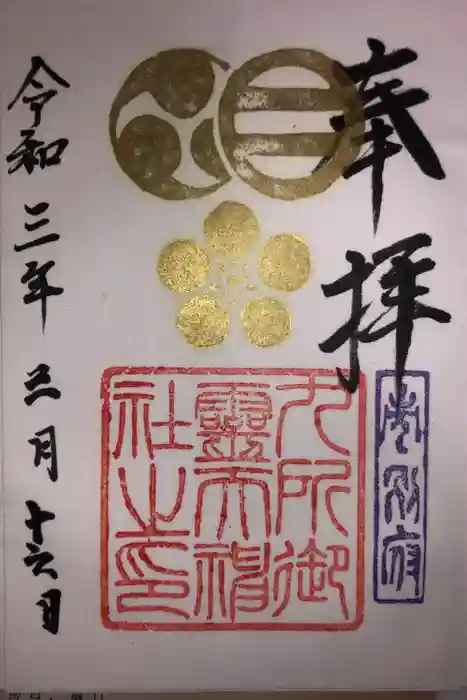 奉拝
九所御
霊天神
社之印
令和三年三月十六日